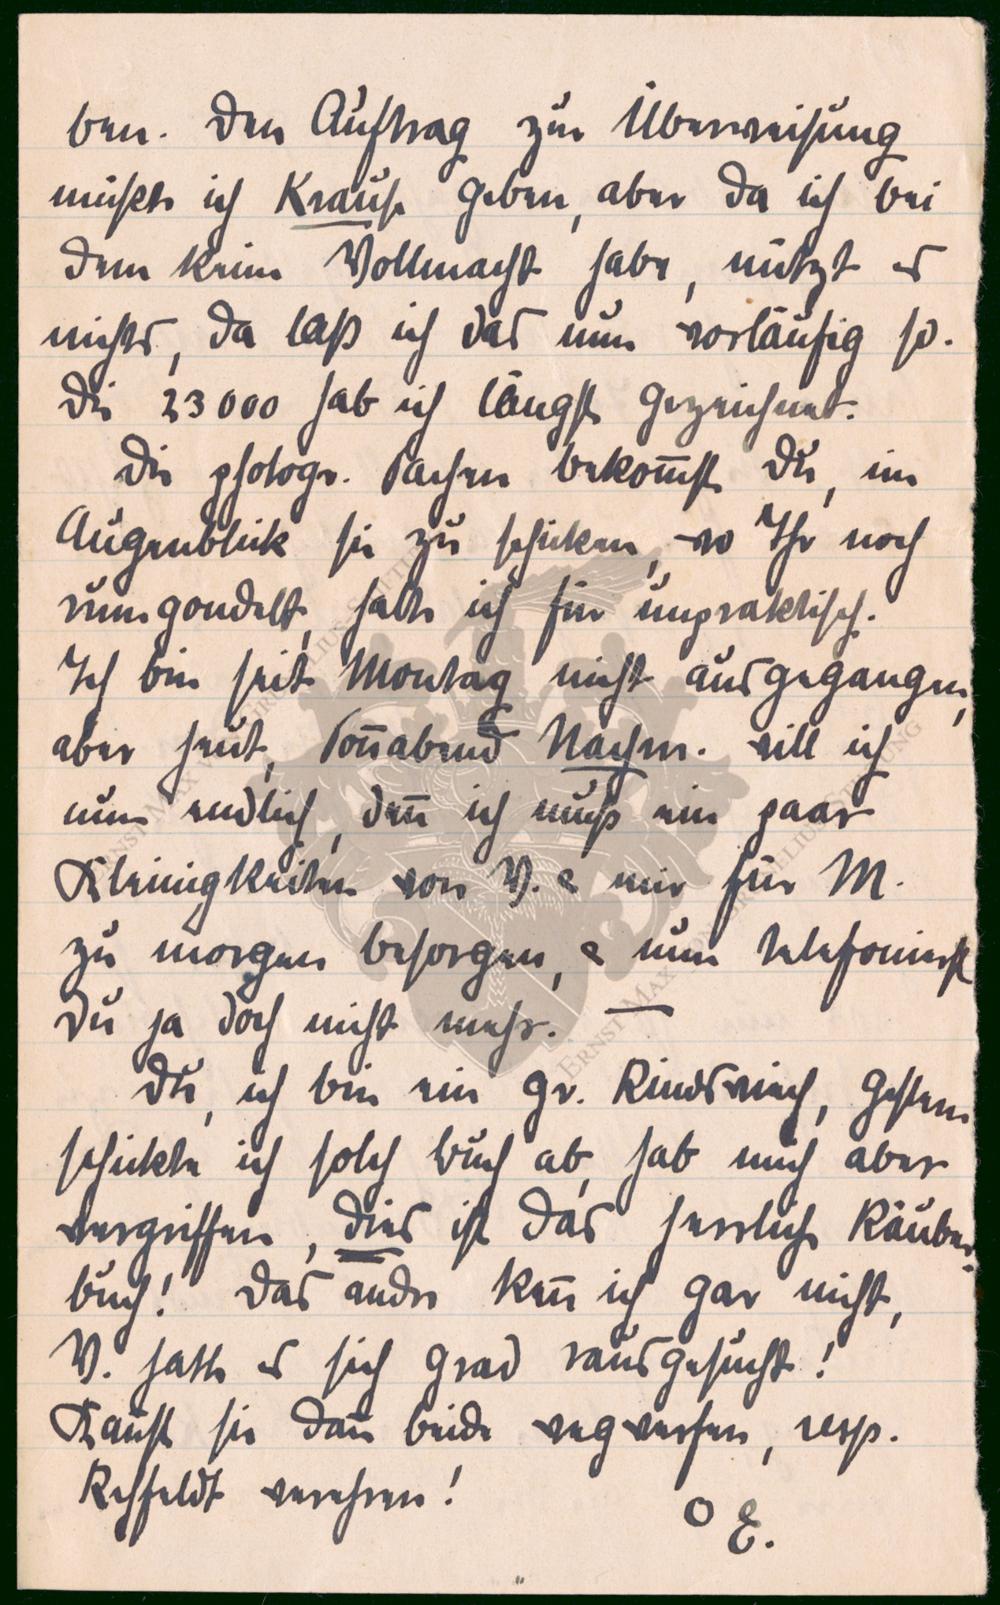 ben. Den Auftrag zur Überweisung
müßte ich Krause geben, aber da ich bei
dem keine Vollmacht habe, nützt es
nichts, da laß ich das nun vorläufig so.
Die 23000 hab ich längst gezeichnet.
Die photogr. Sachen bekom̅st Du, im
Augenblick sie zu schicken, wo Ihr noch
rumgondelt, halte ich für unpraktisch.
Ich bin seit Montag nicht ausgegangen,
aber heut, Son̅abend Nachm. will ich
nun endlich, den̅ ich muß ein paar
Kleinigkeiten von V. & mir für M.
zu morgen besorgen, & nun telefonierst
Du ja doch nicht mehr. —
Du, ich bin ein gr. Rindsviech, gestern
schickte ich solch Buch ab, hab mich aber
vergriffen, dies ist das herrliche Räuber-
buch! Das andre ken̅ ich gar nicht,
V. hatte es sich grad rausgesucht!
Kan̅st sie dan̅ beide wegwerfen, resp.
Rehfeldt verehren!
O E.